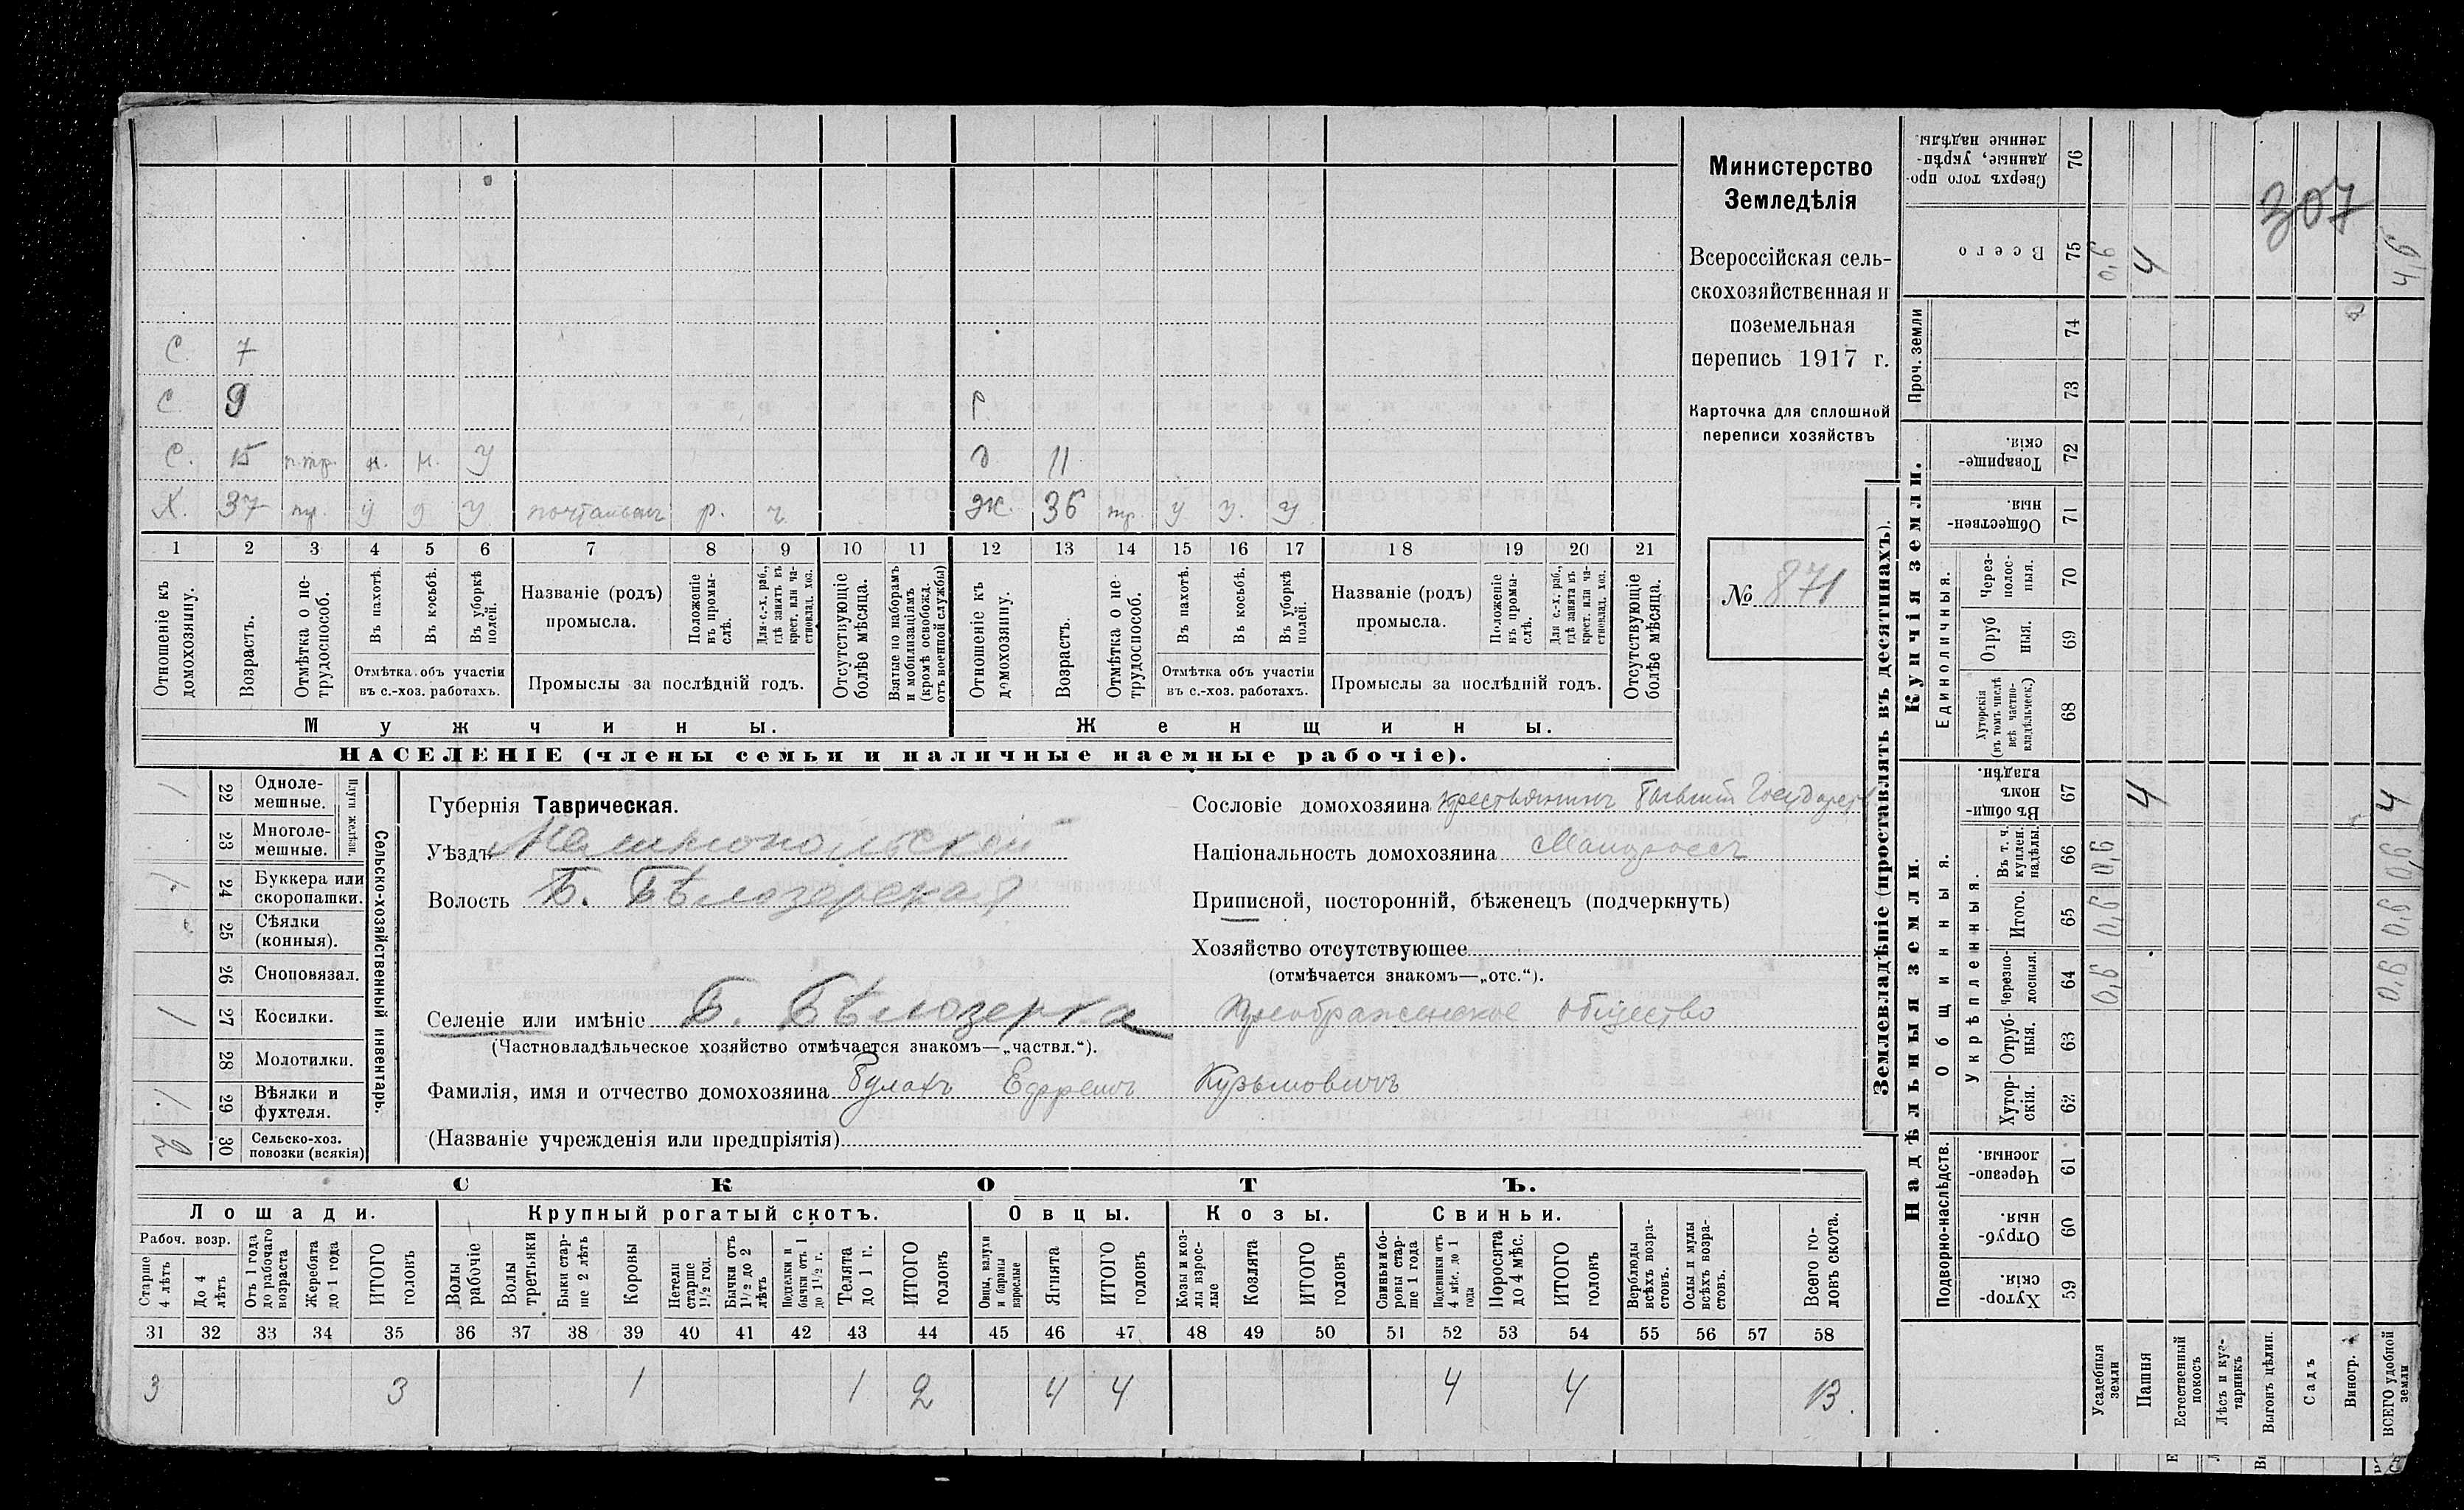 Министерство
Земледѣлія
Всероссійская сель-
скохозяйственная и
поземельная
перепись 1917 г.
Карточка для сплошной
переписи хозяйствъ
№ 871
307
С. 7
С. 9
С. 15 п.тр. н. н. У
Д. 11
Х. 37 тр. У У У почтальон р. ч.
Ж. 36 тр. У У. У
1 2 3 4 5 6 7 8 9 10 11 12 13 14 15 16 17 18 19 20 21
Отношеніе къ домохозяину.
Возрастъ.
Отмѣтка о не-трудоспособ.
Въ пахотѣ.
Въ косьбѣ.
Въ уборкѣ полей.
Отмѣтка объ участіи въ с.-хоз. работахъ.
Названіе (родъ) промысла.
Положеніе въ промы-слѣ.
Для с.-х. раб., гдѣ занятъ въ крест. или ча-стновлад. хоз.
Промыслы за послѣдній годъ.
Отсутствующіе болѣе мѣсяца.
Взятые по наборамъ и мобилизаціямъ (кромѣ освобожд. отъ военной службы)
Отношеніе къ домохозяину.
Возрастъ.
Отмѣтка о не-трудоспособ.
Въ пахотѣ.
Въ косьбѣ.
Въ уборкѣ полей.
Отмѣтка объ участіи въ с.-хоз. работахъ.
Названіе (родъ) промысла.
Положеніе въ промы-слѣ.
Для с.-х. раб., гдѣ занята въ крест. или ча-стновлад. хоз.
Промыслы за послѣдній годъ.
Отсутствующіе болѣе мѣсяца.
Мужчины.
Женщины.
НАСЕЛЕНІЕ (члены семьи и наличные наемные рабочіе).
Сельско-хозяйственный инвентарь.
Плуги желѣзн.
22 Одноле-мешные. /
23 Многоле-мешные.
24 Буккера или скоропашки.
25 Сѣялки (конныя).
26 Сноповязал.
27 Косилки. /
28 Молотилки.
29 Вѣялки и фухтеля.
30 Сельско-хоз. повозки (всякія) 2
Губернія Таврическая.
Уѣздъ Мелитопольской
Волость Б. Бѣлозерская
Селеніе или имѣніе Б. Бѣлозерка Преображенское общество
(Частновладѣльческое хозяйство отмѣчается знакомъ—„частвл.“).
Фамилія, имя и отчество домохозяина Булахъ Ефремъ Кузьмовичъ
(Названіе учрежденія или предпріятія)
Сословіе домохозяина крестьянинъ бывшій Государств
Національность домохозяина Малороссъ
Приписной, посторонній, бѣженецъ (подчеркнуть)
Хозяйство отсутствующее
(отмѣчается знакомъ—„отс.“).
СКОТЪ.
Лошади. Крупный рогатый скотъ. Овцы. Козы. Свиньи.
Рабоч. возр.
Старше 4 лѣтъ
До 4 лѣтъ
Отъ 1 года до рабочаго возраста
Жеребята до 1 года
ИТОГО головъ
Волы рабочіе
Волы третьяки
Быки стар-ше 2 лѣтъ
Коровы
Нетели старше 1½ год.
Бычки отъ 1½ до 2 лѣтъ
Подтелки и бычки отъ 1 до 1½ г.
Телята до 1 г.
ИТОГО головъ
Овцы, валухи и бараны взрослые
Ягнята
ИТОГО головъ
Козы и коз-лы взрос-лые
Козлята
ИТОГО головъ
Свиньи и бо-ровы стар-ше 1 года
Подсвинки отъ 4 мѣс. до 1 года
Поросята до 4 мѣс.
ИТОГО головъ
Верблюды всѣхъ возра-стовъ.
Ослы и мулы всѣхъ возра-стовъ.
Всего го-ловъ скота.
31 32 33 34 35 36 37 38 39 40 41 42 43 44 45 46 47 48 49 50 51 52 53 54 55 56 57 58
3 3 1 1 2 4 4 4 4 13
Землевладѣніе (проставлять въ десятинахъ).
Надѣльныя земли.
Купчія земли.
Проч. земли
Подворно-наслѣдств.
Общинныя.
Укрѣпленныя.
Единоличныя.
Сверхъ того про-данные, укрѣп-ленные надѣлы. 76
Всего 75 0,6 4 4,6
74
73
Товарище-скія. 72
Обществен-ныя. 71
Через-полос-ныя. 70
Отруб ныя. 69
Хуторскія (въ томъ числѣ всѣ частно-владѣльческ.) 68
Въ общи-номъ владѣн. 67 4 4
Въ т. ч. куплен. надѣлы. 66 0,6 0,6
Итого. 65 0,6 0,6
Черезпо-лосныя. 64 0,6 0,6
Отруб-ныя. 63
Хутор-скія. 62
Черезпо-лосныя. 61
Отруб-ныя. 60
Хутор-скія. 59
Усадебныя земли
Пашня
Естественный покосъ
Лѣсъ и кус-тарникъ
Выгонъ цѣлин.
Садъ
Виногр.
ВСЕГО удобной земли